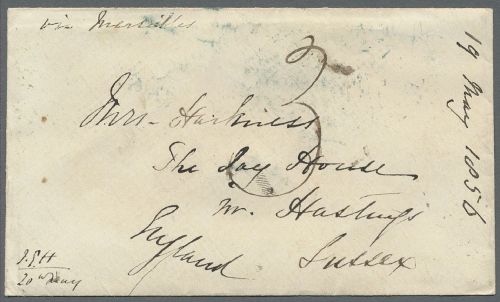 via Marseilles
19 May 1856
3
Mrs Harkness
The Jay House
nr. Hastings
England Sussex
J.E.H
20th May